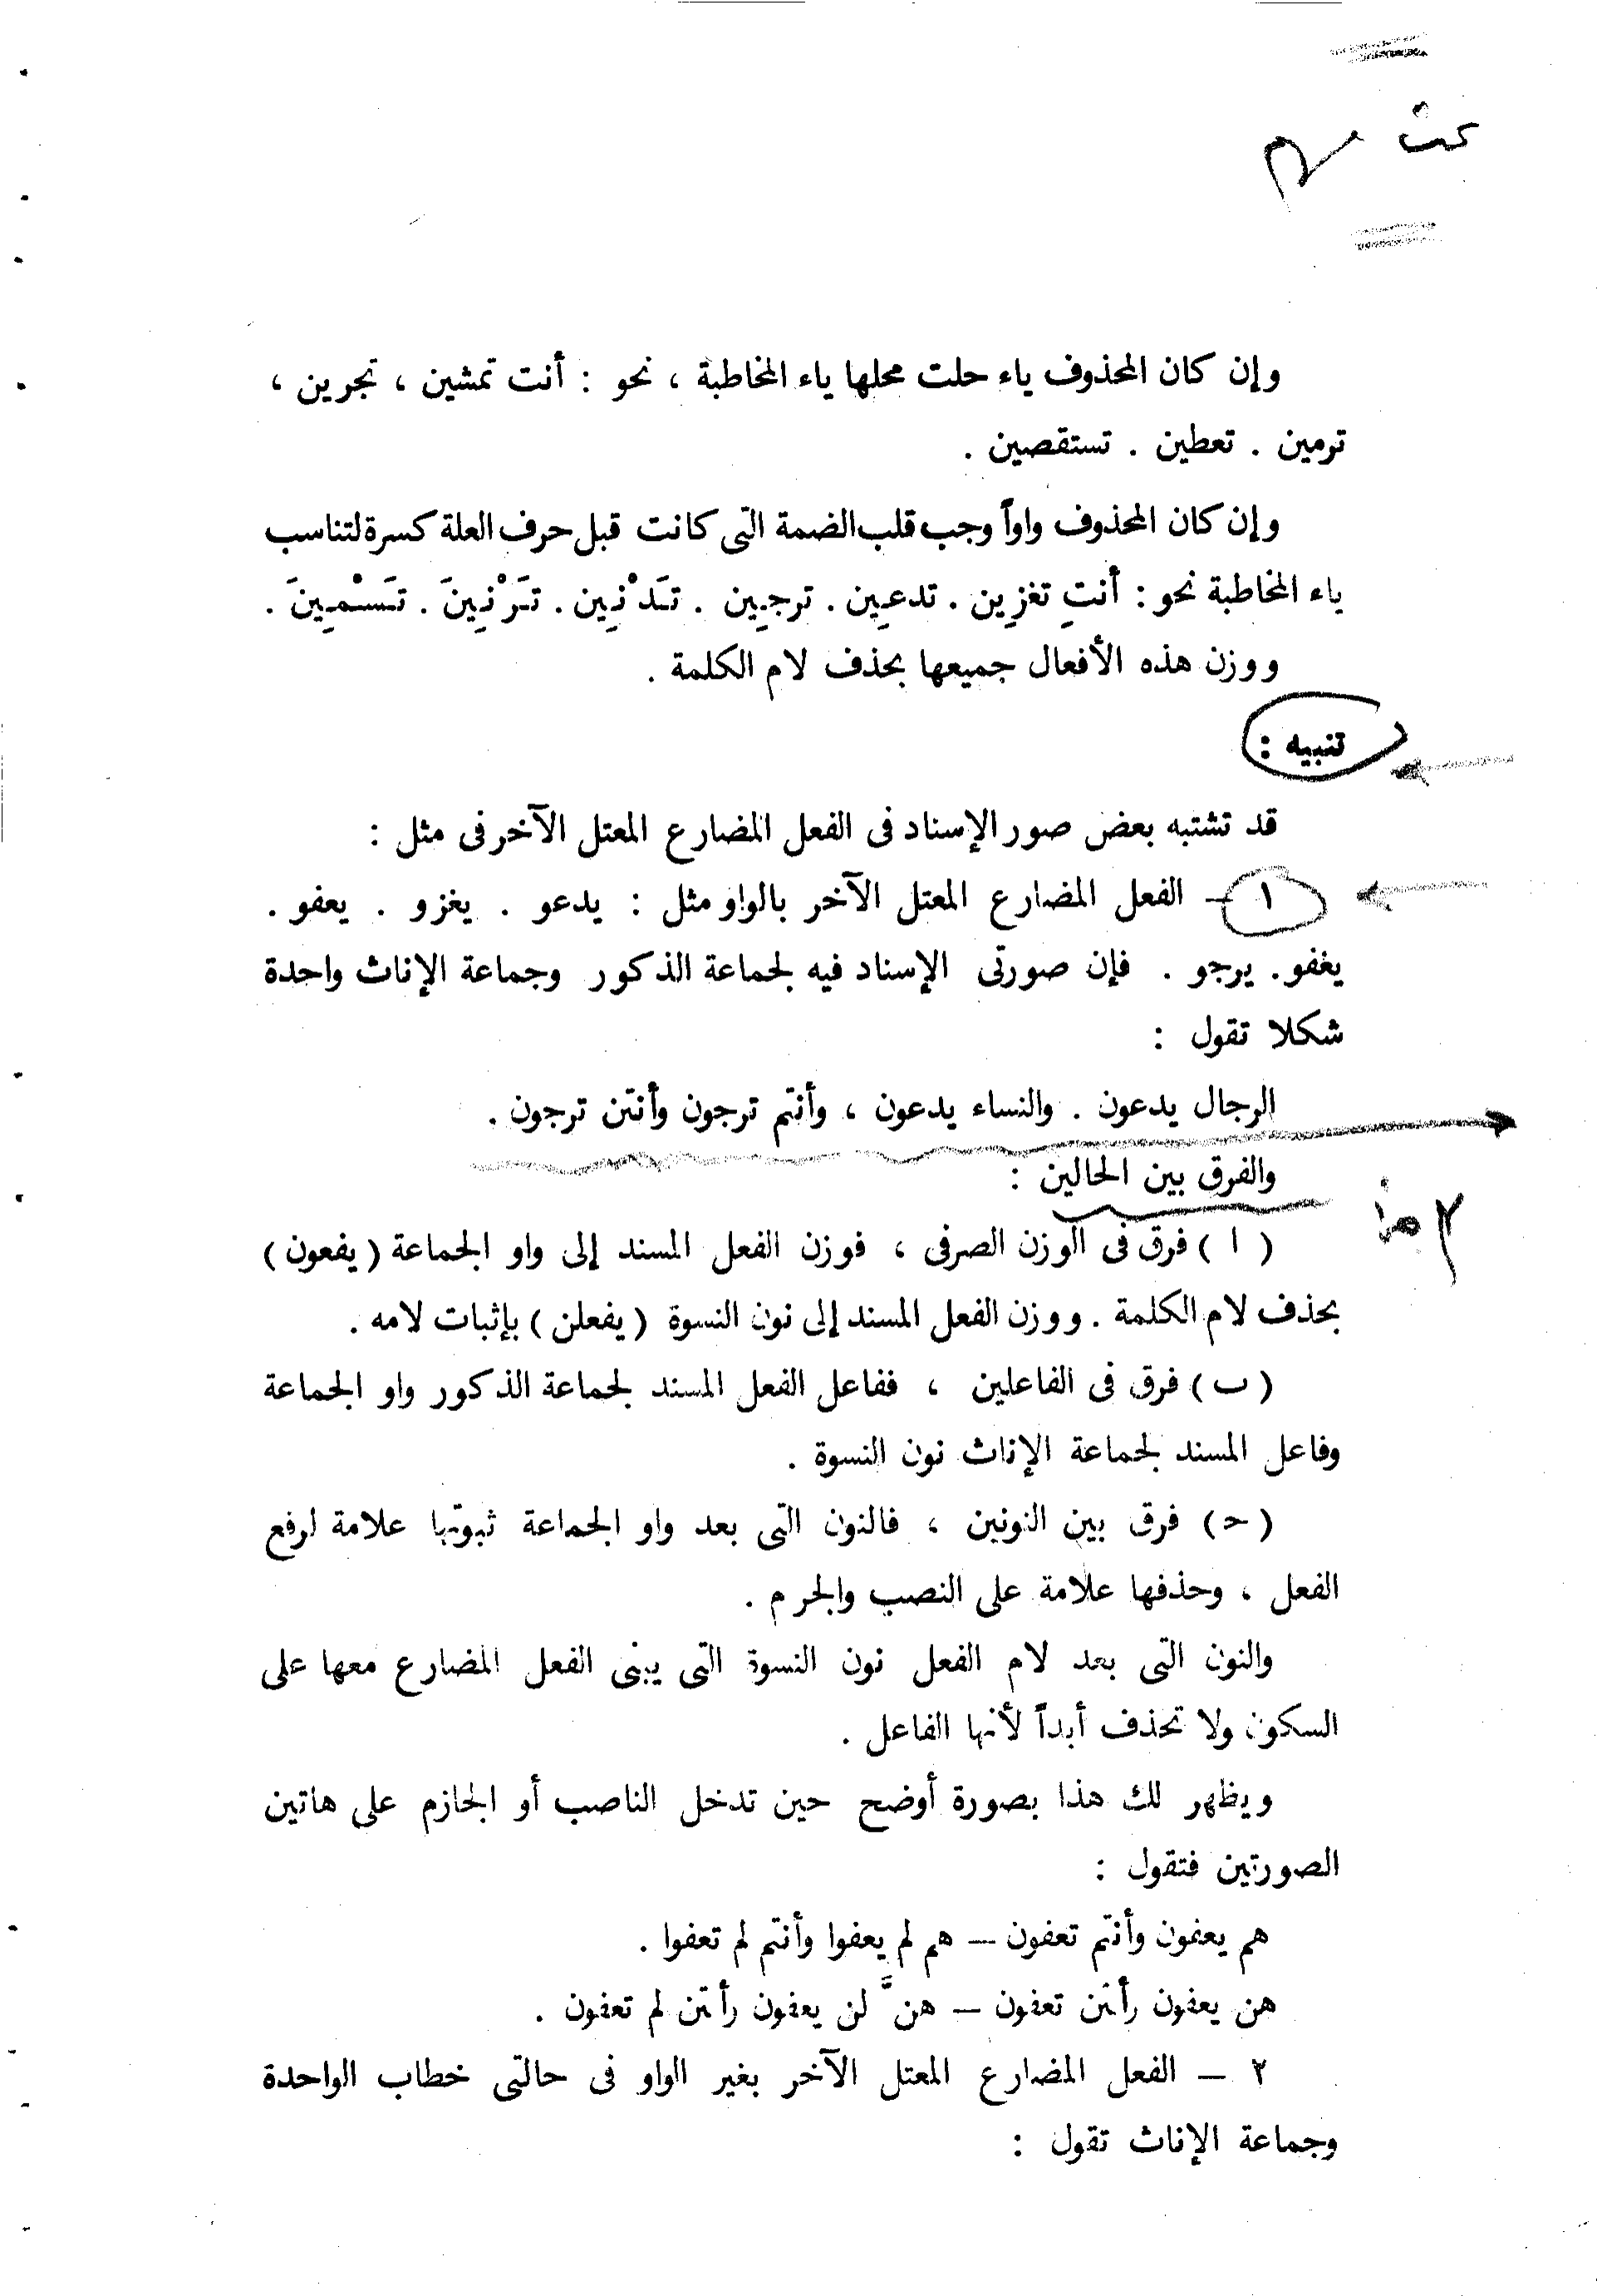 وإن كان المحذوف ياء حلت محلها ياء المخاطبة ، نحو : أنت تمشين ، تجرين ،
ترمين . تعطين . تستقصين .
وإن كان المحذوف واواً وجب قلب الضمة التى كانت قبل حرف العلة كسرة لتناسب
ياء المخاطبة نحو : أنتِ تغزِين . تدعِين . ترجِين . تَدْنِين . تَرْنِينَ . تَسْمِينَ .
ووزن هذه الأفعال جميعها بحذف لام الكلمة .
تنبيه :
قد تشتبه بعض صور الإسناد فى الفعل المضارع المعتل الآخر فى مثل :
١ – الفعل المضارع المعتل الآخر بالواو مثل : يدعو . يغزو . يعفو .
يغفو . يرجو . فإن صورتى الإسناد فيه لجماعة الذكور وجماعة الإناث واحدة
شكلا تقول :
الرجال يدعون . والنساء يدعون ، وأنتم ترجون وأنتن ترجون .
والفرق بين الحالين :
( ا ) فرق فى الوزن الصرفى ، فوزن الفعل المسند إلى واو الجماعة ( يفعون )
بحذف لام الكلمة . ووزن الفعل المسند إلى نون النسوة ( يفعلن ) بإثبات لامه .
( ب ) فرق فى الفاعلين ، ففاعل الفعل المسند لجماعة الذكور واو الجماعة
وفاعل المسند لجماعة الإناث نون النسوة .
( ح ) فرق بين النونين ، فالنون التى بعد واو الجماعة ثبوتها علامة لرفع
الفعل ، وحذفها علامة على النصب والجرم .
والنون التى بعد لام الفعل نون النسوة التى يبنى الفعل المضارع معها على
السكون ولا تحذف أبداً لأنها الفاعل .
ويظهر لك هذا بصورة أوضح حين تدخل الناصب أو الجازم على هاتين
الصورتين فتقول :
هم يعفون وأنتم تعفون – هم لم يعفوا وأنتم لم تعفوا .
هن يعفون رأنتن تعفون – هنَّ لن يعفون رأنتن لم تعفون .
٢ – الفعل المضارع المعتل الآخر بغير الواو فى حالتى خطاب الواحدة
وجماعة الإناث تقول :